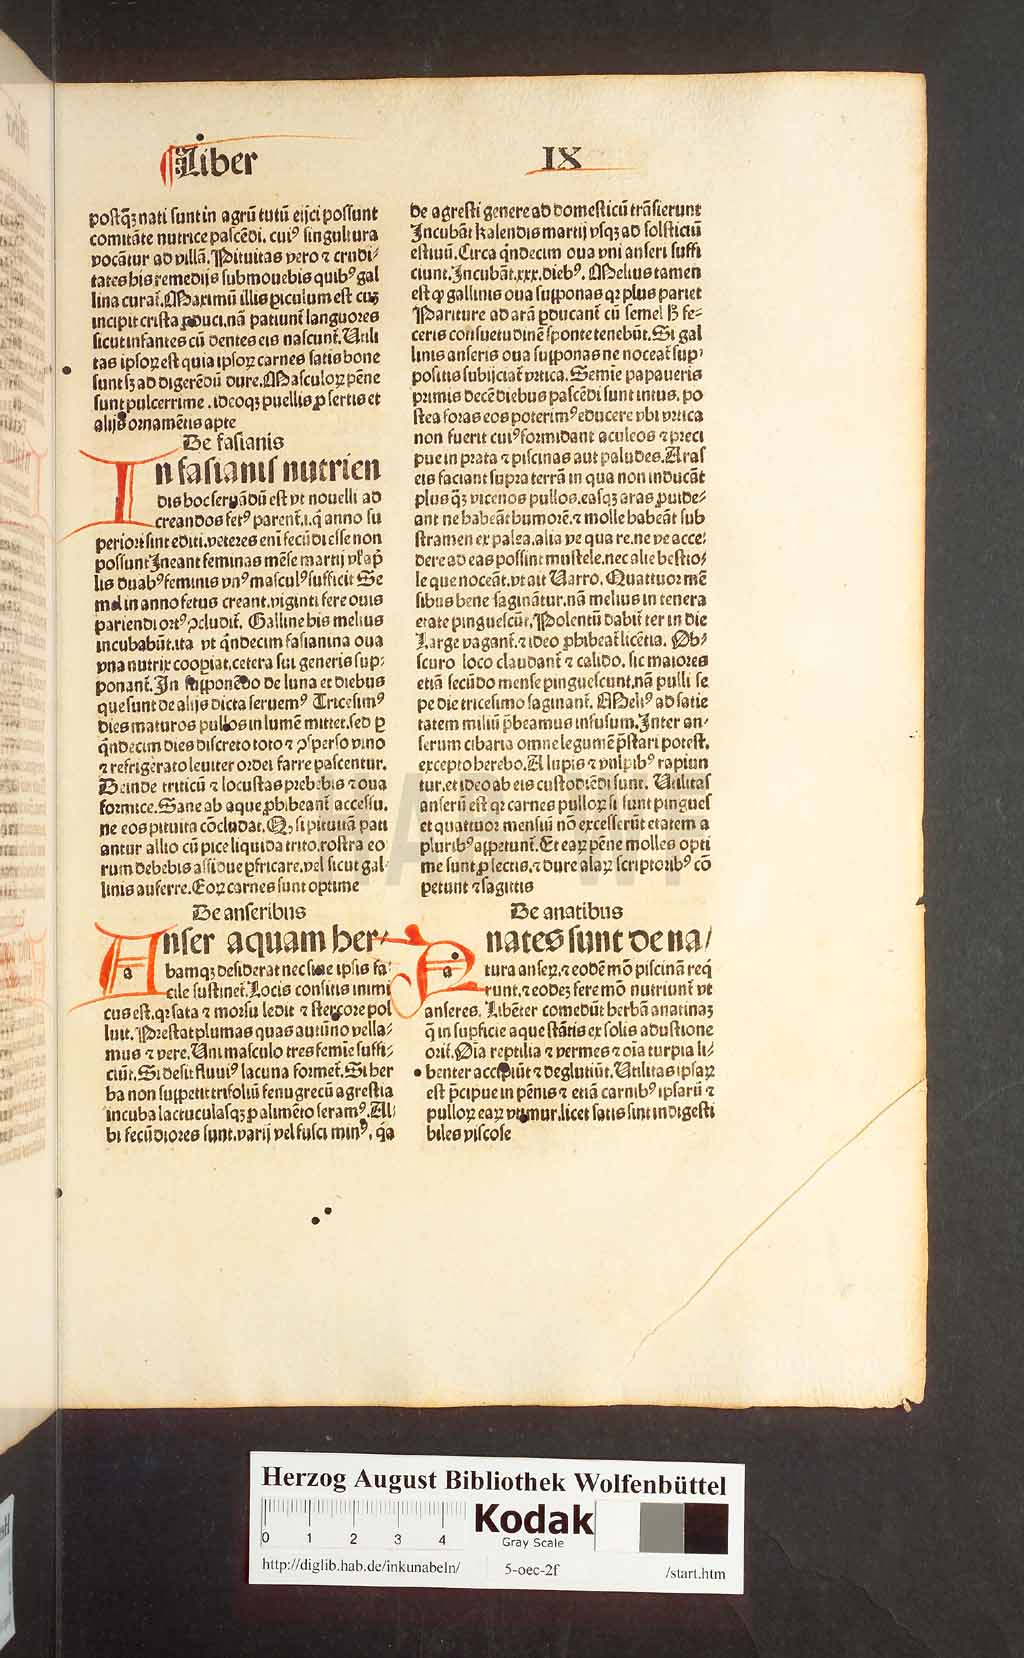 Liber IX
postq̄ꝫ nati sunt in agrū tutū eijci possunt
comitāte nutrice pascēdi. cuiꝰ singultu ra
vocātur ad villā. Pituitas vero ⁊ crudi⸗
tates his remedijs submouebis quibꝰ gal
lina curat᷑. Maximū illis ꝑiculum est cuꝫ
incipit crista ꝓduci. nā patiunt᷑ languores
sicut infantes cū dentes eis nascunt᷑. Utili
tas ipsoꝝ est quia ipsoꝝ carnes satis bone
sunt sꝫ ad digerēdū dure. Masculoꝝ pēne
sunt pulcerrime . ideoqꝫ puellis ꝓ sertis et
alijs ornamētis apte
De fasianis
In fasianis nutrien
dis hoc seruādū est vt nouelli ad
creandos fetꝰ parent᷑. i. q̄ anno su
periori sint editi. veteres enī fecūdi esse non
possunt Ineant feminas mēse martij vl̕ ap̄
lis duabꝰ feminis vnꝰ masculꝰ sufficit Se
mel in anno fetus creant. viginti fere ouis
pariendi ortꝰ ꝯcludit᷑. Galline his melius
incubabūt. ita vt q̄ndecim fasianina oua
vna nutrix cooꝑiat. cetera sui generis sup⸗
ponant᷑. In supponēdo de luna et diebus
que sunt de alijs dicta seruemꝰ Tricesimꝰ
dies maturos pullos in lumē mittet. sed ꝑ
q̄ndecim dies discreto toto ⁊ ꝯsperso vino
⁊ refrigerato leuiter ordei farre pascentur.
Deinde triticū ⁊ locustas prebebis ⁊ oua
formice. Sane ab aque ꝓhibeant᷑ accessu.
ne eos pituita cōcludat. Qꝫ si pituitā pati
antur allio cū pice liquida trito. rostra eo
rum debebis assidue ꝑfricare. vel sicut gal⸗
linis auferre. Eoꝝ carnes sunt optime
De anseribus
Anser aquam her⸗
bamqꝫ desiderat nec sine ipsis fa⸗
cile sustinet᷑. Locis consitis inimi
cus est. qꝛ sata ⁊ morsu ledit ⁊ stercore pol
luit. Prestat plumas quas autūno vella⸗
mus ⁊ vere. Uni masculo tres femīe suffi⸗
ciūt. Si desit fluuiꝰ lacuna formet᷑. Si her
ba non suppetit trifoliū fenugrecū agrestia
incuba lactuculasqꝫ ꝓ alimēto seramꝰ. Al⸗
bi fecūdiores sunt. varij vel fusci minꝰ. q̄a
de agresti genere ad domesticū trāsierunt
Incubāt kalendis martij vsqꝫ ad solsticiū
estiuū. Circa q̄ndecim oua vni anseri suffi
ciunt. Incubāt. xxx. diebꝰ. Melius tamen
est ꝙ gallinis oua supponas qꝛ plus pariet
Pariture ad arā ꝓducant᷑ cū semel ß fe⸗
ceris consuetudinē sponte tenebūt. Si gal
linis anseris oua supponas ne noceat᷑ sup⸗
positis subijciat᷑ vrtica. Semīe papaueris
primis decē diebus pascēdi sunt intus. po
stea foras eos poterimꝰ educere vbi vrtica
non fuerit cuiꝰ formidant aculeos ⁊ preci
pue in prata ⁊ piscinas aut paludes. Aras
eis faciant supra terrā in qua non inducāt
plus q̄ꝫ vicenos pullos. easqꝫ aras ꝓuide⸗
ant ne habeāt humorē. ⁊ molle habeāt sub
stramen ex palea. alia ve qua re. ne ve acce⸗
dere ad eas possint mustele. nec alie bestio⸗
le que noceāt. vt ait Uarro. Quattuor mē
sibus bene saginātur. nā melius in tenera
etate pinguescūt. Polentū dabit᷑ ter in die
Large vagant᷑. ⁊ ideo ꝓhibeat᷑ licētia. Ob⸗
scuro loco claudant᷑ ⁊ calido. sic maiores
etiā secūdo mense pinguescunt. nā pulli se
pe die tricesimo saginant᷑. Meliꝰ ad satie
tatem miliū p̄beamus infusum. Inter an⸗
serum cibaria omne legumē p̄stari potest.
excepto herebo. A lupis ⁊ vulpibꝰ rapiun
tur. et ideo ab eis custodiēdi sunt. Utilitas
anserū est qꝛ carnes pulloꝝ si sunt pingues
et quattuor mensiū nō excesserūt etatem a
pluribꝰ appetunt᷑. Et eaꝝ pēne molles opti
me sunt ꝓ lectis. ⁊ dure alaꝝ scriptoribꝰ cō
petunt ⁊ sagittis
De anatibus
Anates sunt de na⸗
tura anseꝝ. ⁊ eodē mō piscinā req̄
runt. ⁊ eodeꝫ fere mō nutriunt᷑ vt
anseres. Libēter comedūt herbā anatinaꝫ
q̄ in suꝑficie aque stātis ex solis adustione
orit᷑. Oīa reptilia ⁊ vermes ⁊ oīa turpia li⸗
benter accipiūt ⁊ deglutiūt. Utilitas ipsaꝝ
est p̄cipue in pēnis ⁊ etiā carnibꝰ ipsarū ⁊
pulloꝝ eaꝝ vtimur. licet satis sint indigesti
biles viscose
Herzog August Bibliothek Wolfenbüttel
0 1 2 3 4 Kodak
Gray Scale
http://diglib.hab.de/inkunabeln/ 5-oec-2f /start.htm